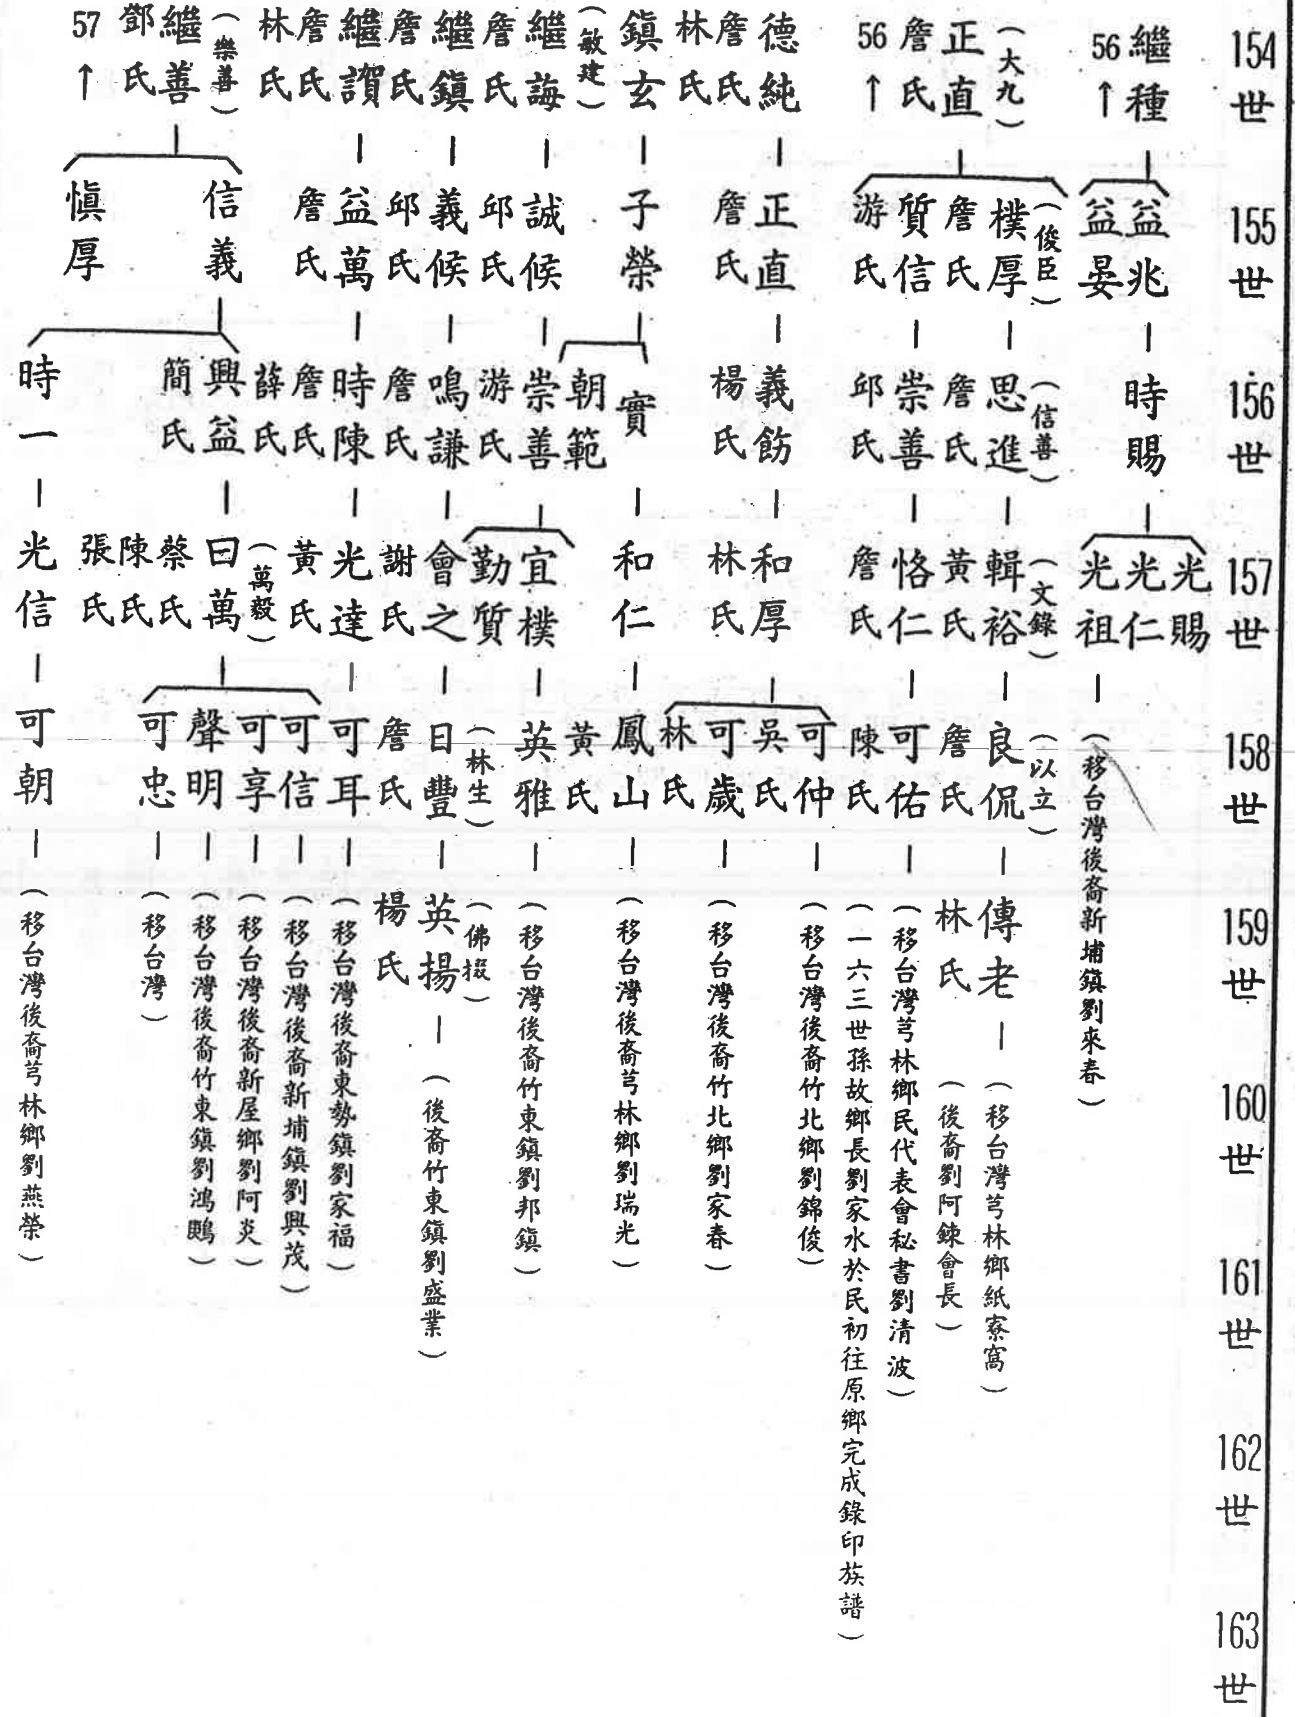 154世
155世
156世
157世
158世
159世
160世
161世
162世
163世
繼種
56↑
益兆
益晏
時賜
光賜
光仁
光祖
（移台灣後裔新埔鎮劉來春）
（大九）
正直
詹氏
56↑
（俊臣）
樸厚
詹氏
質信
游氏
（信善）
思進
詹氏
崇善
邱氏
（文錄）
輯裕
黃氏
恪仁
詹氏
（以立）
良侃
詹氏
可佑
陳氏
傳老
林氏
（移台灣芎林鄉紙寮窩）
（後裔劉阿錬會長）
（移台灣芎林鄉民代表會秘書劉清波）
（一六三世孫故鄉長劉家水於民初往原鄉完成錄印族譜）
德純
詹氏
林氏
正直
詹氏
義飭
楊氏
和厚
林氏
可仲
吳氏
可歲
林氏
（移台灣後裔竹北鄉劉錦俊）
（移台灣後裔竹北鄉劉家春）
鎮玄
（敏建）
子榮
實
朝範
和仁
鳳山
黃氏
（移台灣後裔芎林鄉劉瑞光）
繼誨
詹氏
誠候
邱氏
崇善
游氏
宜樸
勤質
英雅
（移台灣後裔竹東鎮劉邦鎮）
繼鎮
詹氏
義候
邱氏
鳴謙
詹氏
會之
謝氏
（林生）
日豐
詹氏
（佛掇）
英揚
楊氏
（後裔竹東鎮劉盛業）
繼謨
詹氏
林氏
益萬
詹氏
時陳
詹氏
薛氏
光達
黃氏
可耳
（移台灣後裔東勢鎮劉家福）
（樂善）
繼善
鄧氏
57↑
信義
慎厚
興益
簡氏
時一
（萬毅）
曰萬
蔡氏
陳氏
張氏
光信
可信
可享
聲明
可忠
可朝
（移台灣後裔新埔鎮劉興茂）
（移台灣後裔新屋鄉劉阿炎）
（移台灣後裔竹東鎮劉鴻鵬）
（移台灣）
（移台灣後裔芎林鄉劉燕榮）